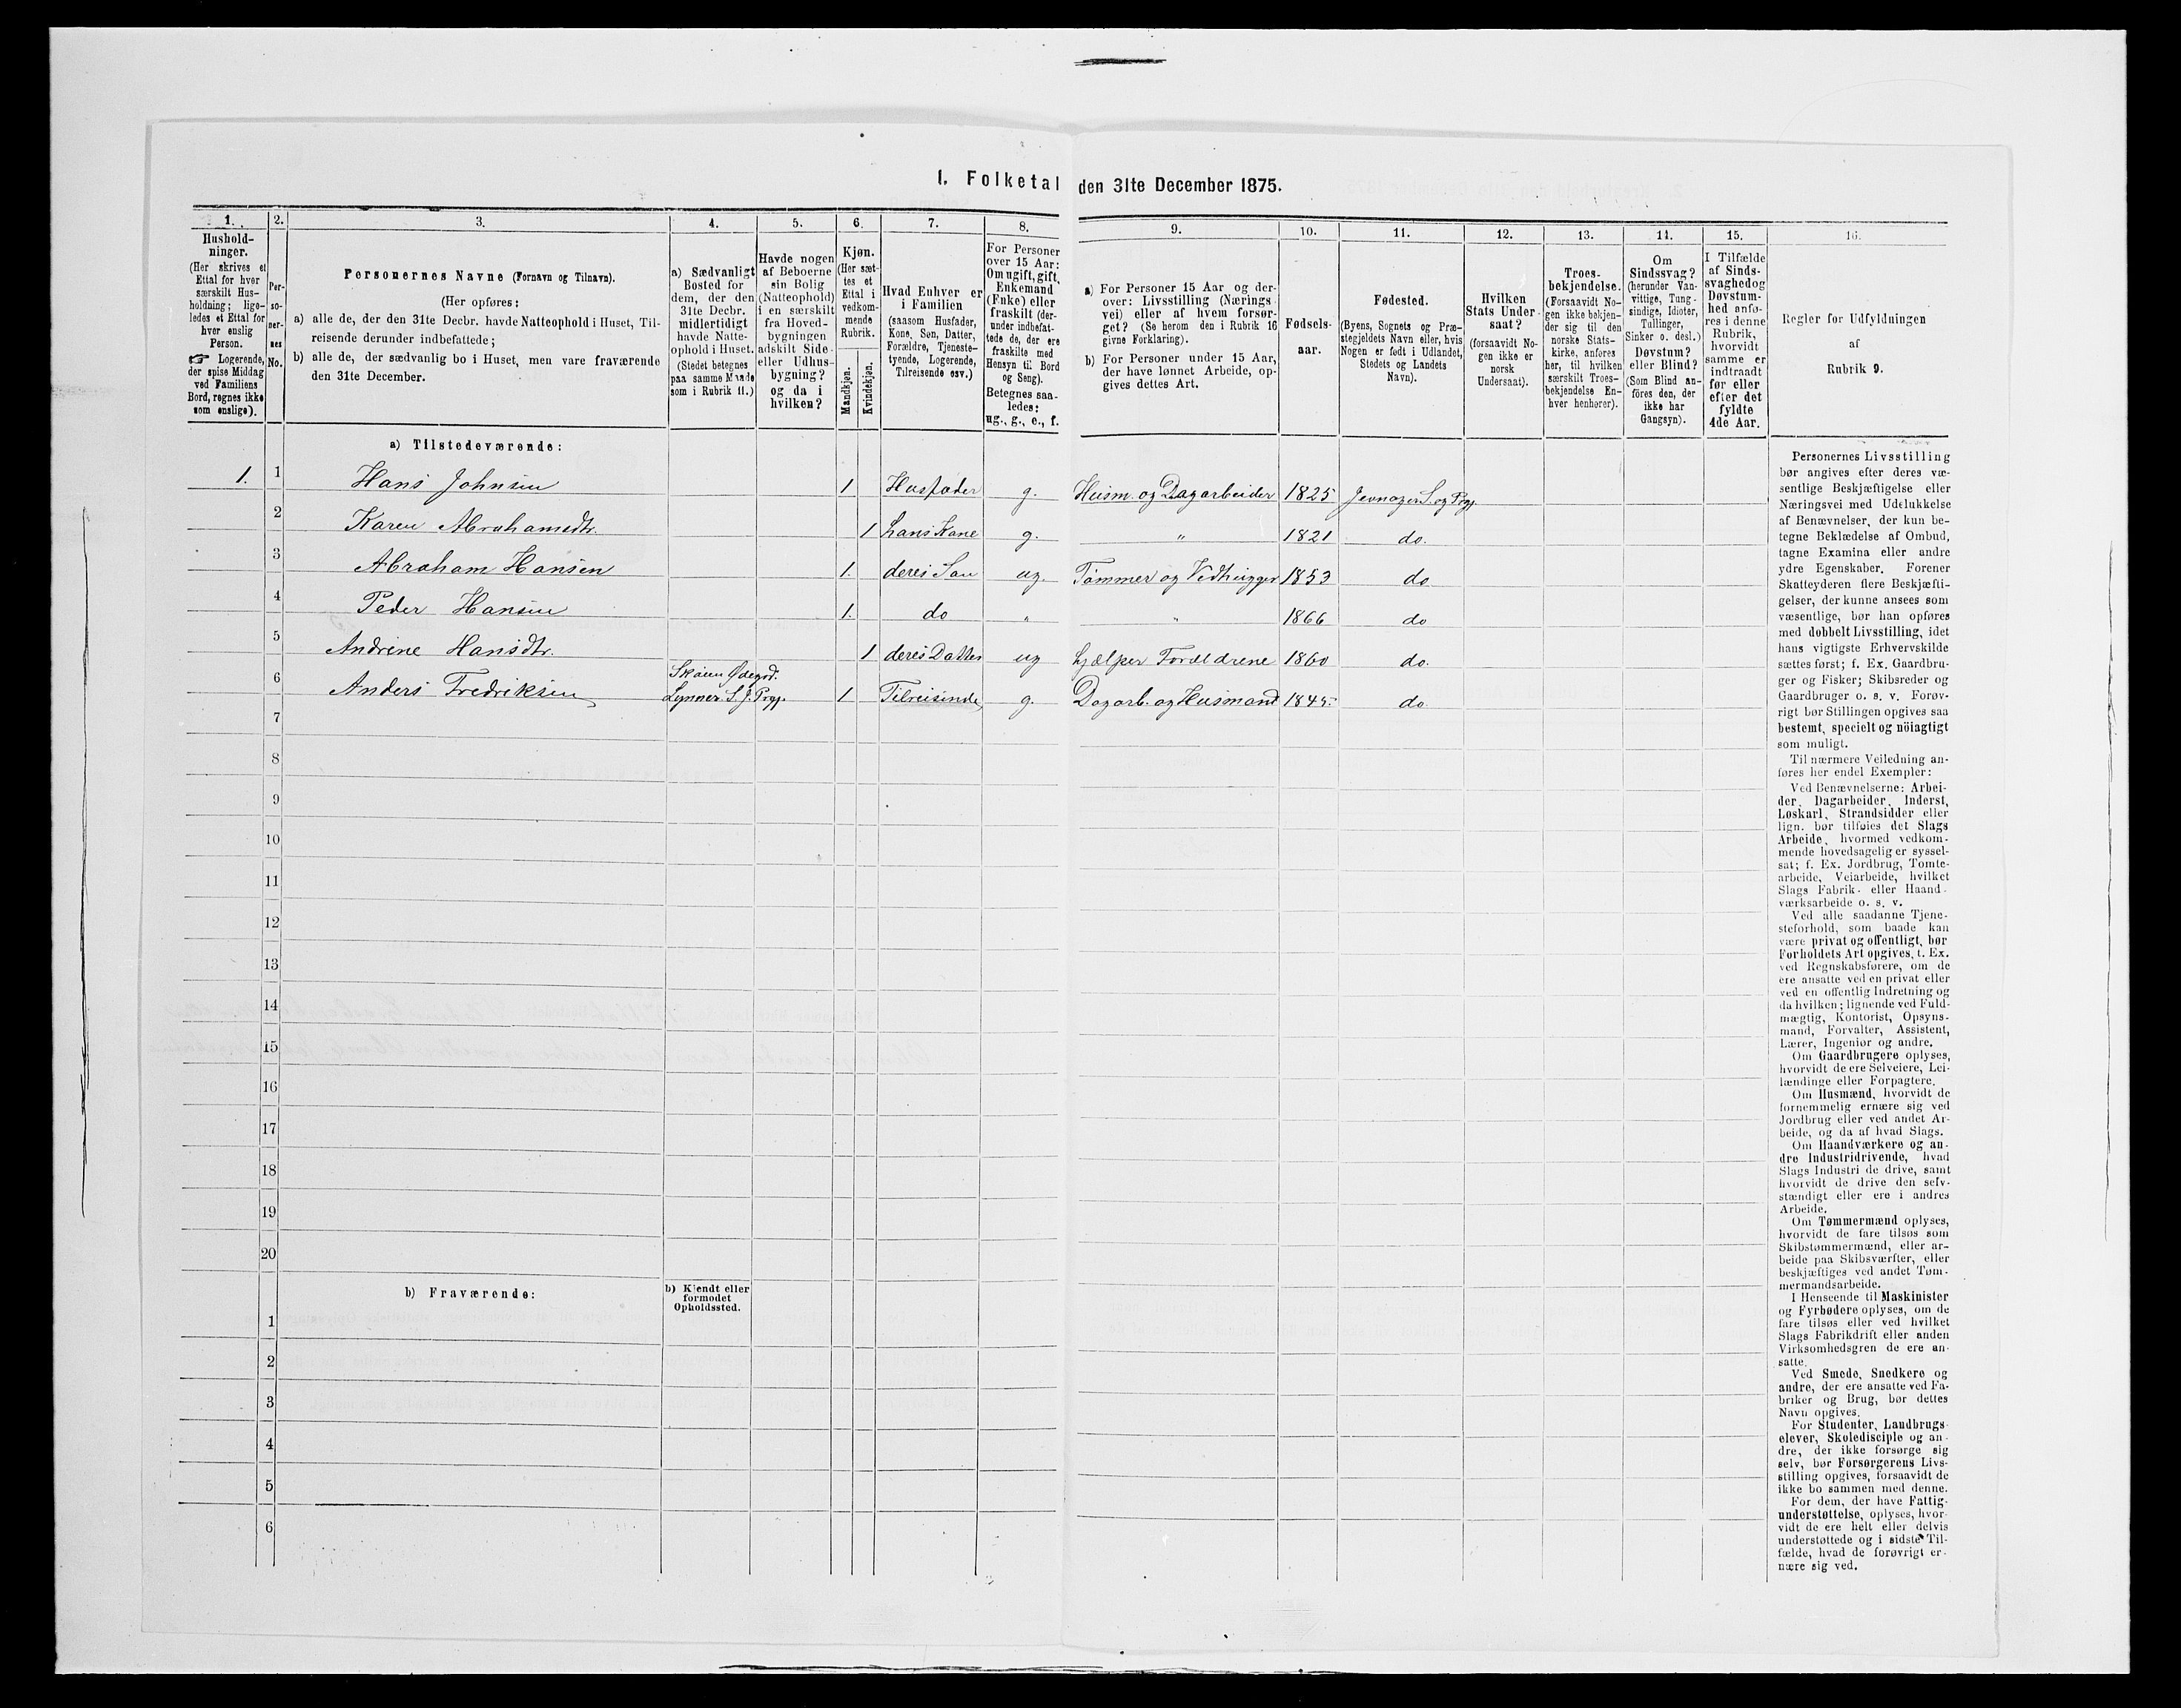 1. Folketal den 31te December 1875.
1. 2. 3. 4. 5. 6. 7. 8. 9. 10. 11. 12. 13. 14. 15. 16.
Hushold-
ninger.
(Her skrives et
Ettal for hver
særskilt Hus-
holdning; lige-
ledes et Ettal for
hver enslig
Person.
☞ Logerende,
der spise Middag
ved Familiens
Bord, regnes ikke
som enslige).
Per-
so-
ner-
nes
No.
Personernes Navne (Fornavn og Tilnavn).
(Her opføres:
a) alle de, der den 31te Decbr. havde Natteophold i Huset, Til-
reisende derunder indbefattede;
b) alle de, der sædvanlig bo i Huset, men vare fraværende
den 31te December.
a) Sædvanligt
Bosted for
dem, der den
31te Decbr.
midlertidigt
havde Natte-
ophold i Huset.
(Stedet betegnes
paa samme Maade
som i Rubrik 11.)
Havde nogen
af Beboerne
sin Bolig
(Natteophold)
i en særskilt
fra Hoved-
bygningen
adskilt Side-
eller Udhus-
bygning?
og da i
hvilken?
Kjøn.
(Her sæt-
tes et
Ettal i
vedkom-
mende
Rubrik.
Mandkjøn.
Kvindekjøn.
Hvad Enhver er
i Familien
(saasom Husfader,
Kone, Søn, Datter,
Forældre, Tjeneste-
tyende, Logerende,
Tilreisende osv.)
For Personer
over 15 Aar:
Om ugift, gift,
Enkemand
(Enke) eller
fraskilt (der-
under indbefat-
tede de, der ere
fraskilte med
Hensyn til Bord
og Seng).
Betegnes saa-
ledes:
ug., g., e., f.
a) For Personer 15 Aar og der-
over: Livsstilling (Nærings-
vei) eller af hvem forsør-
get? (Se herom den i Rubrik 16
givne Forklaring).
b) For Personer under 15 Aar,
der have lønnet Arbeide, op-
gives dettes Art.
Fødsels-
aar.
Fødested.
(Byens, Sognets og Præ-
stegjeldets Navn eller, hvis
Nogen er født i Udlandet,
Stedets og Landets
Navn).
Hvilken
Stats Under-
saat?
(forsaavidt No-
gen ikke er
norsk
Undersaat).
Troes-
bekjendelse.
(Forsaavidt No-
gen ikke bekjen-
der sig til den
norske Stats-
kirke, anføres
her, til hvilken
særskilt Troes-
bekjendelse En-
hver henhører).
Om
Sindssvag?
(herunder Van-
vittige, Tung-
sindige, Idioter,
Tullinger,
Sinker o. desl.)
Døvstum?
eller Blind?
(Som Blind an-
føres den, der
ikke har
Gangsyn).
I Tilfælde
af Sinds-
svaghed og
Døvstum-
hed anfø-
res i denne
Rubrik,
hvorvidt
samme er
indtraadt
før eller
efter det
fyldte
4de Aar.
Regler for Udfyldningen
af
Rubrik 9.
a) Tilstedeværende:
1. 1 Hans Johnsen 1 Husfader g. Husm. og Dagarbeider 1825 Jevnager S. og Prgj.
2 Karen Abrahamsdtr. 1 hans Kone g. " 1821 do.
3 Abraham Hansen 1. deres Søn ug. Tømmer og Vedhugger 1853 do
4 Peder Hansen 1. do " " 1866 do
5 Andrine Hansdtr. 1 deres Datter ug hjælper Forældrene 1860 do.
Skøien Ødegrd.
6 Anders Fredriksen Lynner S. J. Prgj. 1 Tilreisende g. Dagarb. og Husmand 1845. do.
7
8
9
10
11
12
13
14
15
16
17
18
19
20
b) Fraværende:
b) Kjendt eller
formodet
Opholdssted.
1
2
3
4
5
6
Personernes Livsstilling
bør angives efter deres væ-
sentlige Beskjæftigelse eller
Næringsvei med Udelukkelse
af Benævnelser, der kun be-
tegne Beklædelse af Ombud,
tagne Examina eller andre
ydre Egenskaber. Forener
Skatteyderen flere Beskjæfti-
gelser, der kunne ansees som
væsentlige, bør han opføres
med dobbelt Livsstilling, idet
hans vigtigste Erhvervskilde
sættes først; f. Ex. Gaardbru-
ger og Fisker; Skibsreder og
Gaardbruger o. s. v. Forøv-
rigt bør Stillingen opgives saa
bestemt, specielt og nöiagtigt
som muligt.
Til nærmere Veiledning an-
føres her endel Exempler:
Ved Benævnelserne: Arbei-
der, Dagarbeider, Inderst,
Løskarl, Strandsidder eller
lign. bør tilføies det Slags
Arbeide, hvormed vedkom-
mende hovedsagelig er syssel-
sat; f. Ex. Jordbrug, Tomte-
arbeide, Veiarbeide, hvilket
Slags Fabrik- eller Haand-
værksarbeide o. s. v.
Ved alle saadanne Tjene-
steforhold, som baade kan
være privat og offentligt, bør
Forholdets Art opgives, t. Ex.
ved Regnskabsførere, om de
ere ansatte ved en privat eller
ved en offentlig Indretning og
da hvilken; lignende ved Fuld-
mægtig, Kontorist, Opsyns-
mand, Forvalter, Assistent,
Lærer, Ingeniør og andre.
Om Gaardbrugere oplyses,
hvorvidt de ere Selveiere, Lei-
lændinge eller Forpagtere.
Om Husmænd, hvorvidt de
fornemmelig ernære sig ved
Jordbrug eller ved andet Ar-
beide, og da af hvad Slags.
Om Haandværkere og an-
dre Industridrivende, hvad
Slags Industri de drive, samt
hvorvidt de drive den selv-
stændigt eller ere i andres
Arbeide.
Om Tømmermænd oplyses,
hvorvidt de fare tilsøs som
Skibstømmermænd, eller ar-
beide paa Skibsværfter, eller
beskjæftiges ved andet Tøm-
mermandsarbeide.
I Henseende til Maskinister
og Fyrbødere oplyses, om de
fare tilsøs eller ved hvilket
Slags Fabrikdrift eller anden
Virksomhedsgren de ere an-
satte.
Ved Smede, Snedkere og
andre, der ere ansatte ved Fa-
briker og Brug, bør dettes
Navn opgives.
For Studenter, Landbrugs-
elever, Skoledisciple og an-
dre, der ikke forsørge sig
selv, bør Forsørgerens Livs-
stilling opgives, forsaavidt de
ikke bo sammen med denne.
For dem, der have Fattig-
understøttelse, oplyses, hvor-
vidt de ere helt eller delvis
understøttede og i sidste Til-
fælde, hvad de forøvrigt er-
nære sig ved.